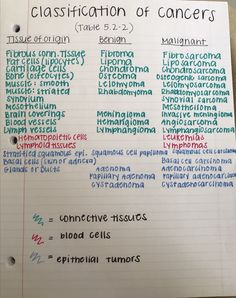 Classification of Cancers
(Table 5.2-2)
Tissue of origin Benign Malignant
Fibrous conn. Tissue Fibroma Fibrosarcoma
Fat cells (lipocytes) Lipoma Liposarcoma
Cartilage cells Chondroma Chondrosarcoma
Bone (osteocytes) Osteoma osteogenic sarcoma
Muscle: smooth Leiomyoma Leiomyosarcoma
Muscle: striated Rhabdomyoma Rhabdomyosarcoma
Synovium Synovial sarcoma
Mesothelium Mesothelioma
Brain coverings Meningioma invasive meningioma
Blood vessels Hemangioma Angiosarcoma
Lymph vessels Lymphangioma Lymphangiosarcoma
Hematopoietic cells Leukemias
Lymphoid tissues Lymphomas
Stratified squamous epi. squamous cell papilloma squamous cell carcinoma
Basal cells (skin or adnexa) Basal cell carcinoma
Glands or ducts Adenoma Adenocarcinoma
Papillary adenoma Papillary adenocarcinoma
cystadenoma cystadenocarcinoma
= connective tissues
= blood cells
= epithelial tumors